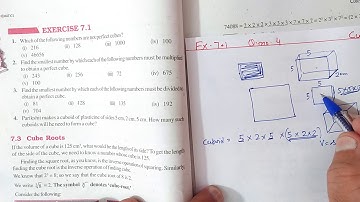 EXERCISE 7.1
1. Which of the following numbers are not perfect cubes?
(i) 216 (ii) 128 (iii) 1000 (iv) 100
(v) 46656
2. Find the smallest number by which each of the following numbers must be multiplied
to obtain a perfect cube.
(i) 243 (ii) 256 (iii) 72 (iv) 675
(v) 100
3. Find the smallest number by which each of the following numbers must be divided to
obtain a perfect cube.
(i) 81 (ii) 128 (iii) 135 (iv) 192
(v) 704
4. Parikshit makes a cuboid of plasticine of sides 5 cm, 2 cm, 5 cm. How many such
cuboids will he need to form a cube?
7.3 Cube Roots
If the volume of a cube is 125 cm³, what would be the length of its side? To get the length
of the side of the cube, we need to know a number whose cube is 125.
Finding the square root, as you know, is the inverse operation of squaring. Similarly,
finding the cube root is the inverse operation of finding cube.
We know that 2³ = 8; so we say that the cube root of 8 is 2.
We write ∛8 = 2. The symbol ∛ denotes 'cube-root.'
Consider the following:
Ex-7.1 Q.no-4
5
5
2cm
5
5
Cuboid = 5×2×5 × (5×2×2)